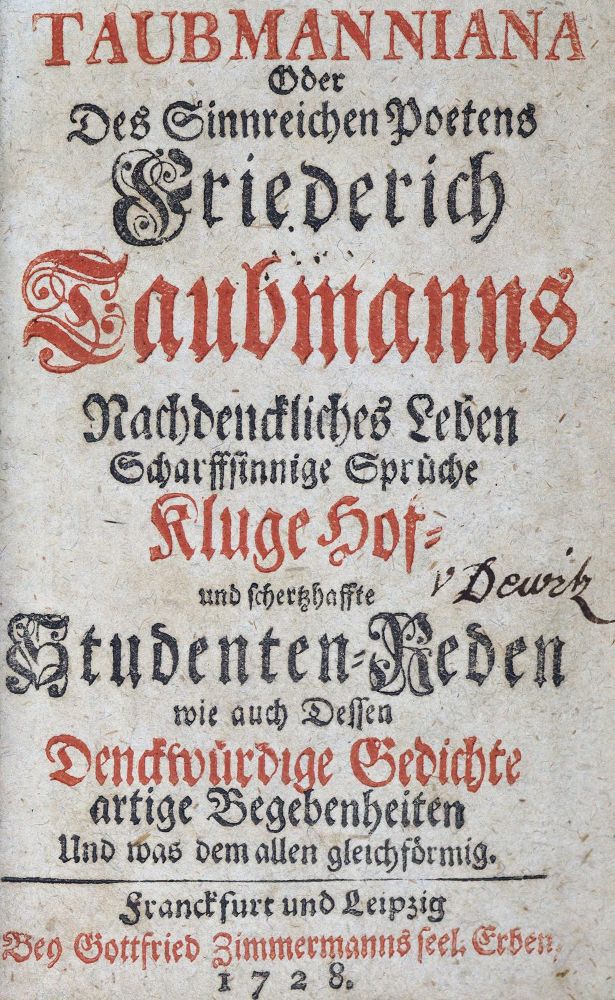 TAUBMANNIANA
Oder
Des Sinnreichen Poetens
Friederich
Taubmanns
Nachdenckliches Leben
Scharffsinnige Sprüche
Kluge Hof-
und schertzhaffte
v Dewitz
Studenten-Reden
wie auch Dessen
Denckwürdige Gedichte
artige Begebenheiten
Und was dem allen gleichförmig.
Franckfurt und Leipzig
Bey Gottfried Zimmermanns seel. Erben,
1728.